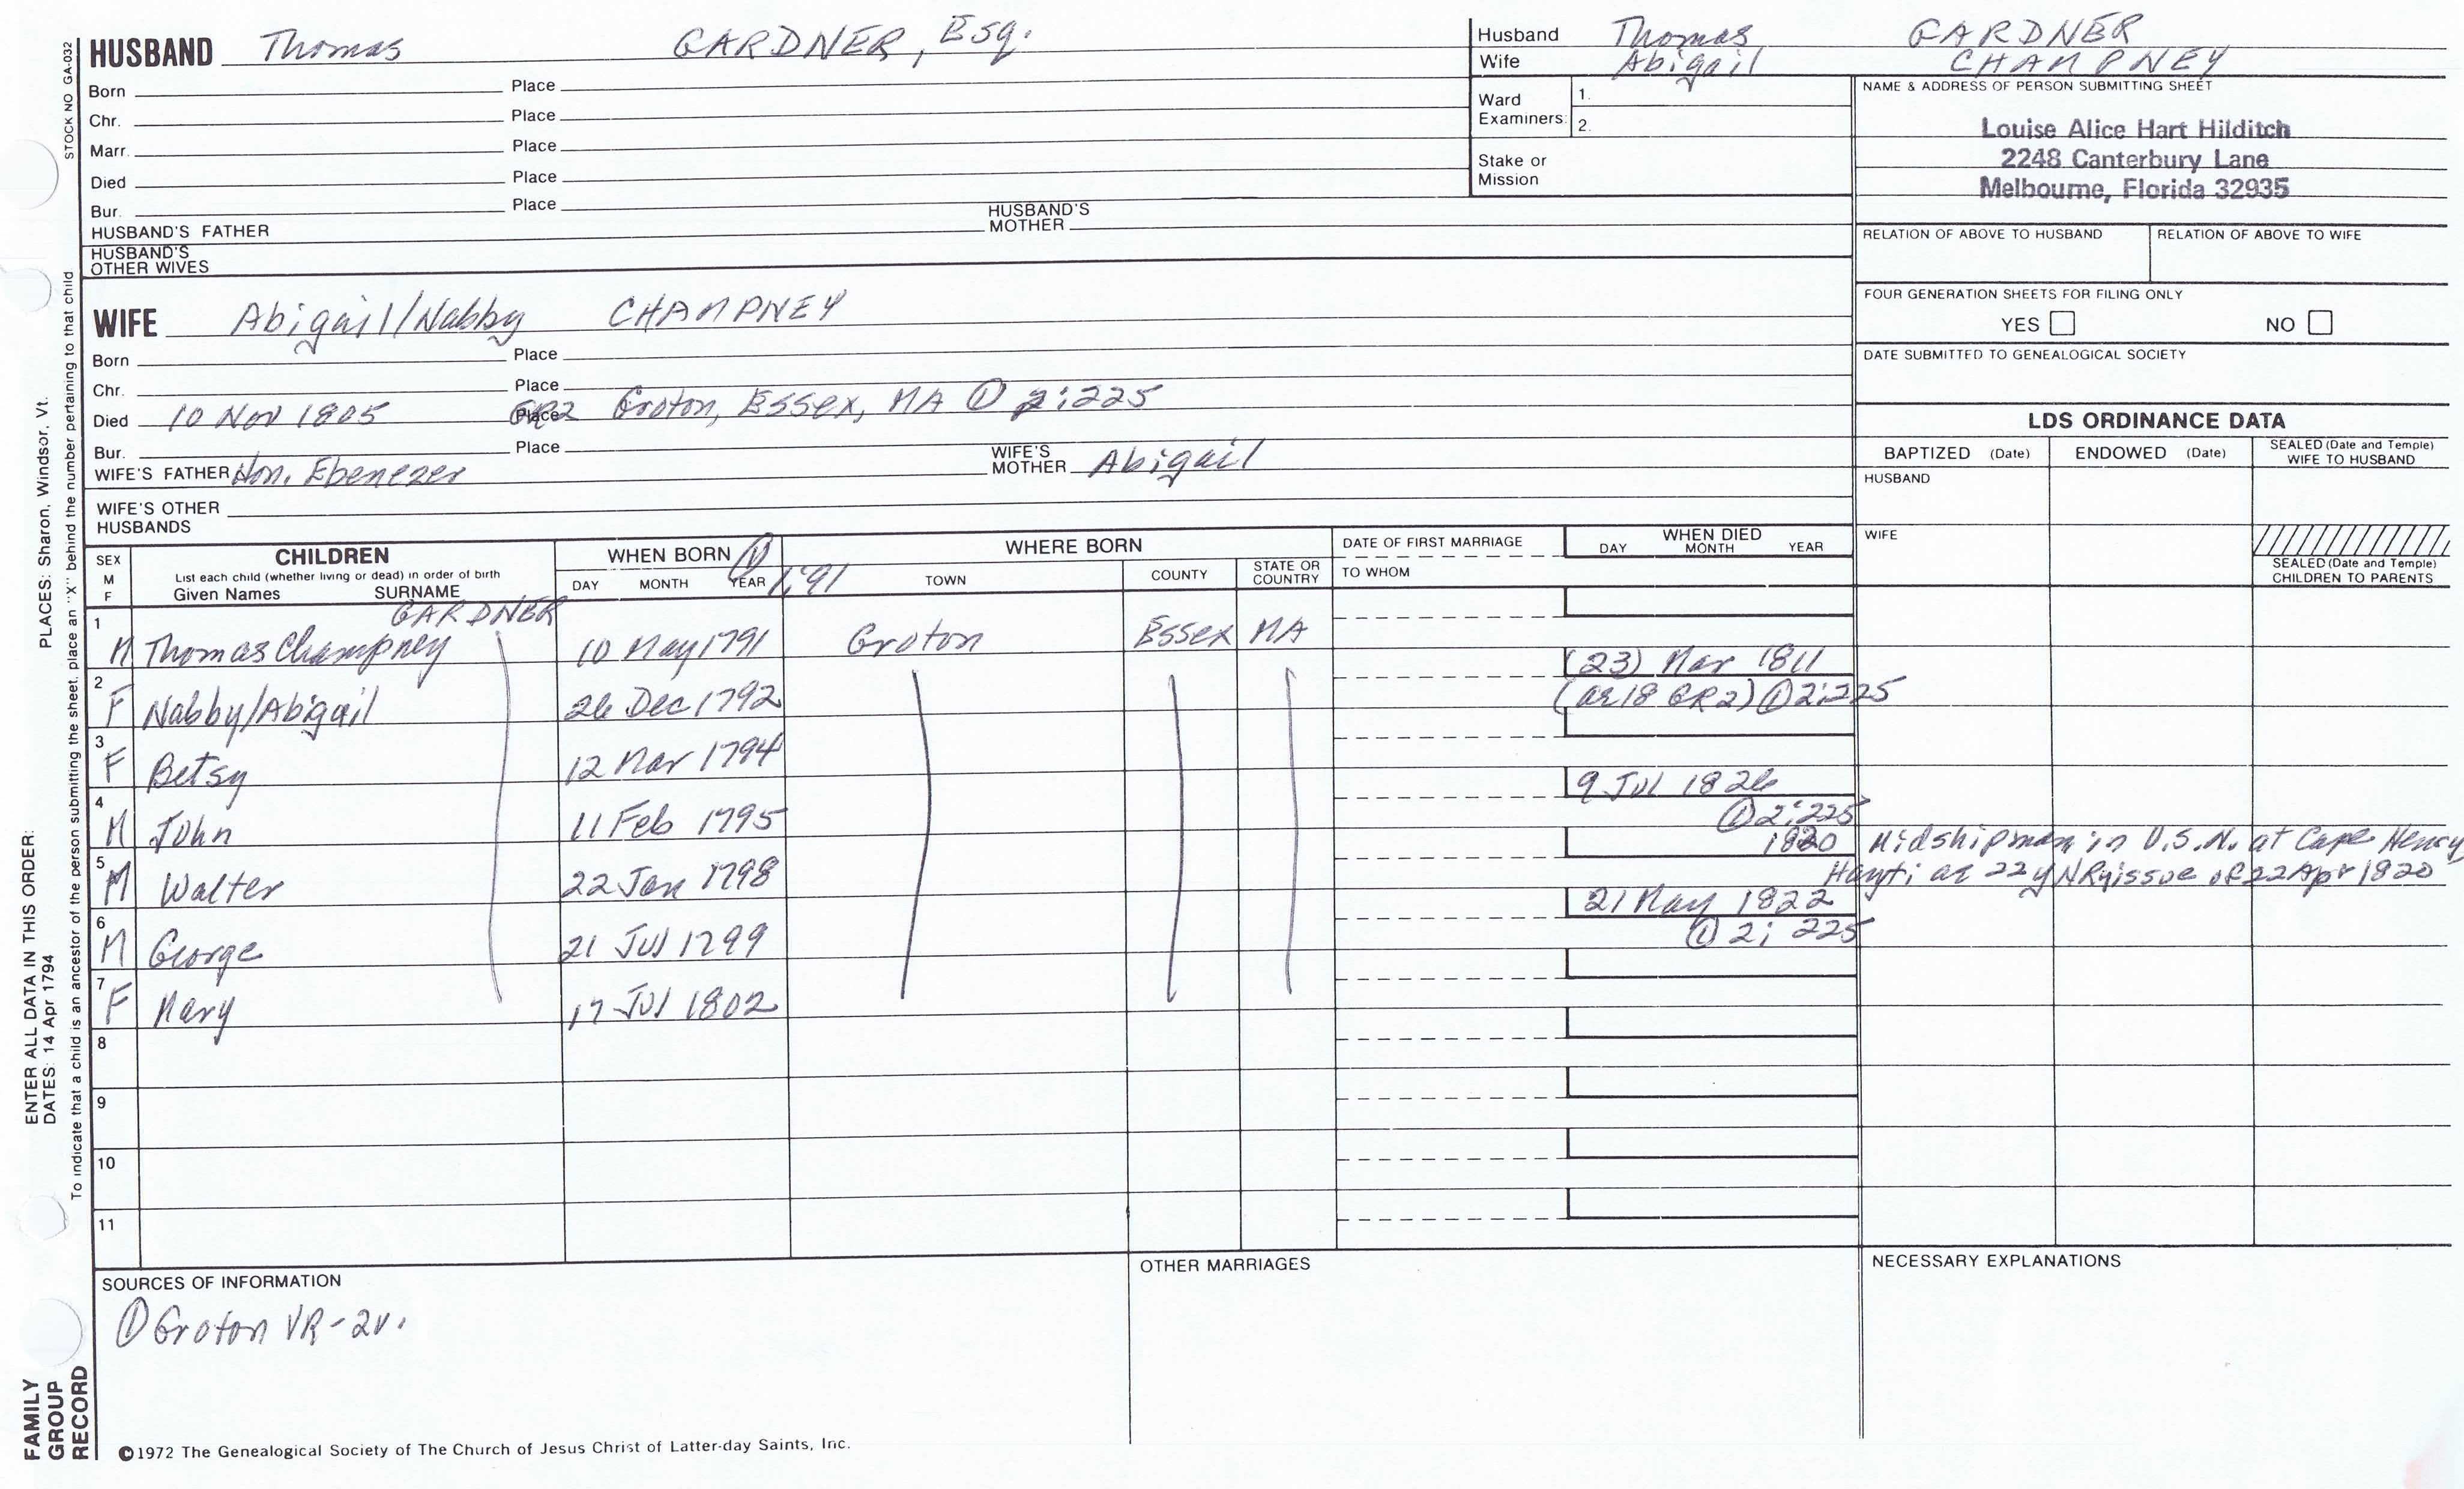 STOCK NO GA-032
HUSBAND Thomas GARDNER, Esq.
Born Place
Chr. Place
Marr. Place
Died Place
Bur. Place
HUSBAND'S FATHER HUSBAND'S MOTHER
HUSBAND'S OTHER WIVES
Husband Thomas GARDNER
Wife Abigail CHAMPNEY
Ward Examiners: 1.
2.
Stake or Mission
NAME & ADDRESS OF PERSON SUBMITTING SHEET
Louise Alice Hart Hilditch
2248 Canterbury Lane
Melbourne, Florida 32935
RELATION OF ABOVE TO HUSBAND RELATION OF ABOVE TO WIFE
FOUR GENERATION SHEETS FOR FILING ONLY
YES NO
DATE SUBMITTED TO GENEALOGICAL SOCIETY
WIFE Abigail/Nabby CHAMPNEY
Born Place
Chr. Place
Died 10 Nov 1805 Place GR2 Groton, Essex, MA ① 2:225
Bur. Place
WIFE'S FATHER Hon. Ebenezer WIFE'S MOTHER Abigail
WIFE'S OTHER HUSBANDS
LDS ORDINANCE DATA
BAPTIZED (Date) ENDOWED (Date) SEALED (Date and Temple) WIFE TO HUSBAND
HUSBAND
WIFE
SEALED (Date and Temple) CHILDREN TO PARENTS
SEX M F
CHILDREN
List each child (whether living or dead) in order of birth
Given Names SURNAME
WHEN BORN ① 1:91
DAY MONTH YEAR
WHERE BORN
TOWN COUNTY STATE OR COUNTRY
DATE OF FIRST MARRIAGE
TO WHOM
WHEN DIED
DAY MONTH YEAR
GARDNER
1 M Thomas Champney 10 May 1791 Groton Essex MA
2 F Nabby/Abigail 26 Dec 1792 (23) Mar 1811
(ae 18 GR2) ① 2:225
3 F Betsy 12 Mar 1794
4 M John 11 Feb 1795 9 Jul 1826
① 2:225
5 M Walter 22 Jan 1798 1820 Midshipman in U.S.N. at Cape Henry
Hayti ae 22y NR issue of 22 Apr 1820
6 M George 21 Jul 1799 21 May 1822
① 2; 225
7 F Mary 17 Jul 1802
8
9
10
11
SOURCES OF INFORMATION
① Groton VR-2v.
OTHER MARRIAGES
NECESSARY EXPLANATIONS
©1972 The Genealogical Society of The Church of Jesus Christ of Latter-day Saints, Inc.
ENTER ALL DATA IN THIS ORDER:
DATES: 14 Apr 1794 PLACES: Sharon, Windsor, Vt.
To indicate that a child is an ancestor of the person submitting the sheet, place an "X" behind the number pertaining to that child
FAMILY
GROUP
RECORD